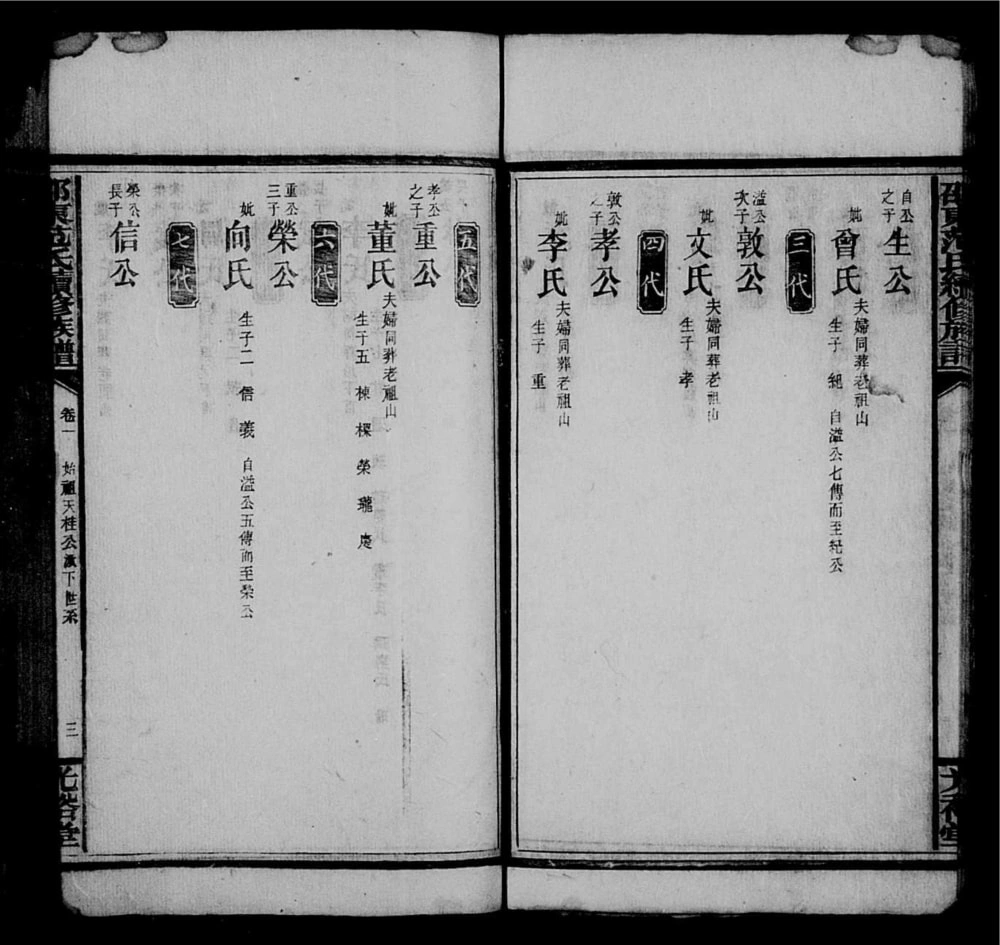 邵東范氏續修族譜 光裕堂
自公之子 生公
妣曾氏 夫婦同葬老祖山
生子 紀 自溢公七傳而至紀公
三代
溢公次子 敦公
妣文氏 夫婦同葬老祖山
生子 孝
四代
敦公之子 孝公
妣李氏 夫婦同葬老祖山
生子 重
五代
孝公之子 重公
妣董氏 夫婦同葬老祖山
生子五 棟 樑 榮 瓏 慶
六代
重公三子 榮公
妣向氏 生子二 信 義 自溢公五傳而至榮公
七代
榮公長子 信公
邵東范氏續修族譜 卷一 始祖天桂公派下世系 三 光裕堂